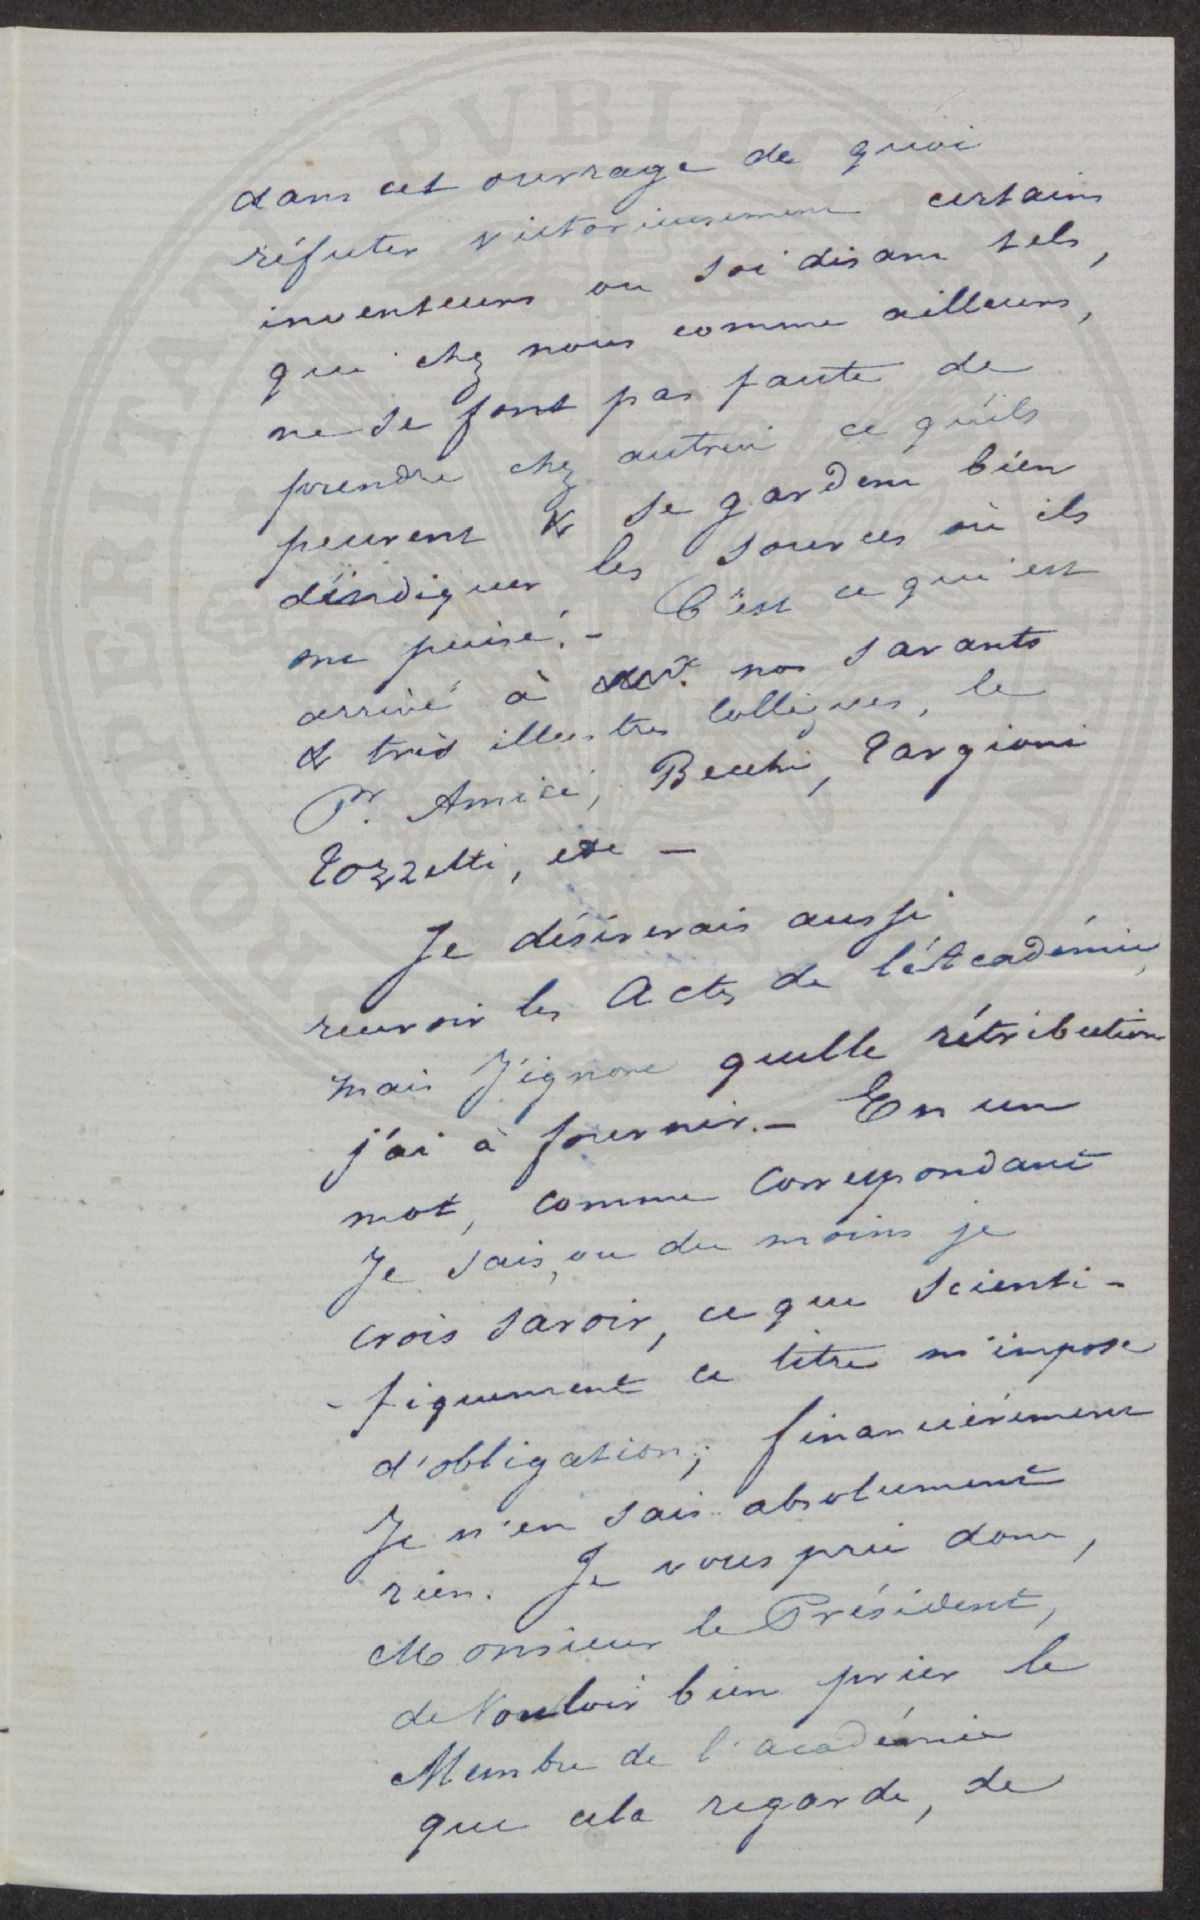 dans cet ouvrage de quoi
réfuter victorieusement certains
inventeurs ou soi disant tels,
qui chez nous comme ailleurs,
ne se font pas faute de
prendre chez autrui ce qu'ils
peuvent & se gardent bien
d'indiquer les sources où ils
ont puisé. – C'est ce qui est
arrivé à nos savants
& très illustres Collègues, le
Pr. Amici, Becchi, Targioni
Tozzetti, etc –
Je désirerais aussi
recevoir les Actes de l'Académie,
mais j'ignore quelle rétribution
j'ai à fournir. – En un
mot, comme Correspondant
Je sais, ou du moins je
crois savoir, ce que scienti-
-fiquement ce titre m'impose
d'obligation; financièrement
Je n'en sais absolument
rien. Je vous prie donc,
Monsieur le Président,
de vouloir bien prier le
Membre de l'académie
que cela regarde, de
PUBLICAE PROSPERITATI